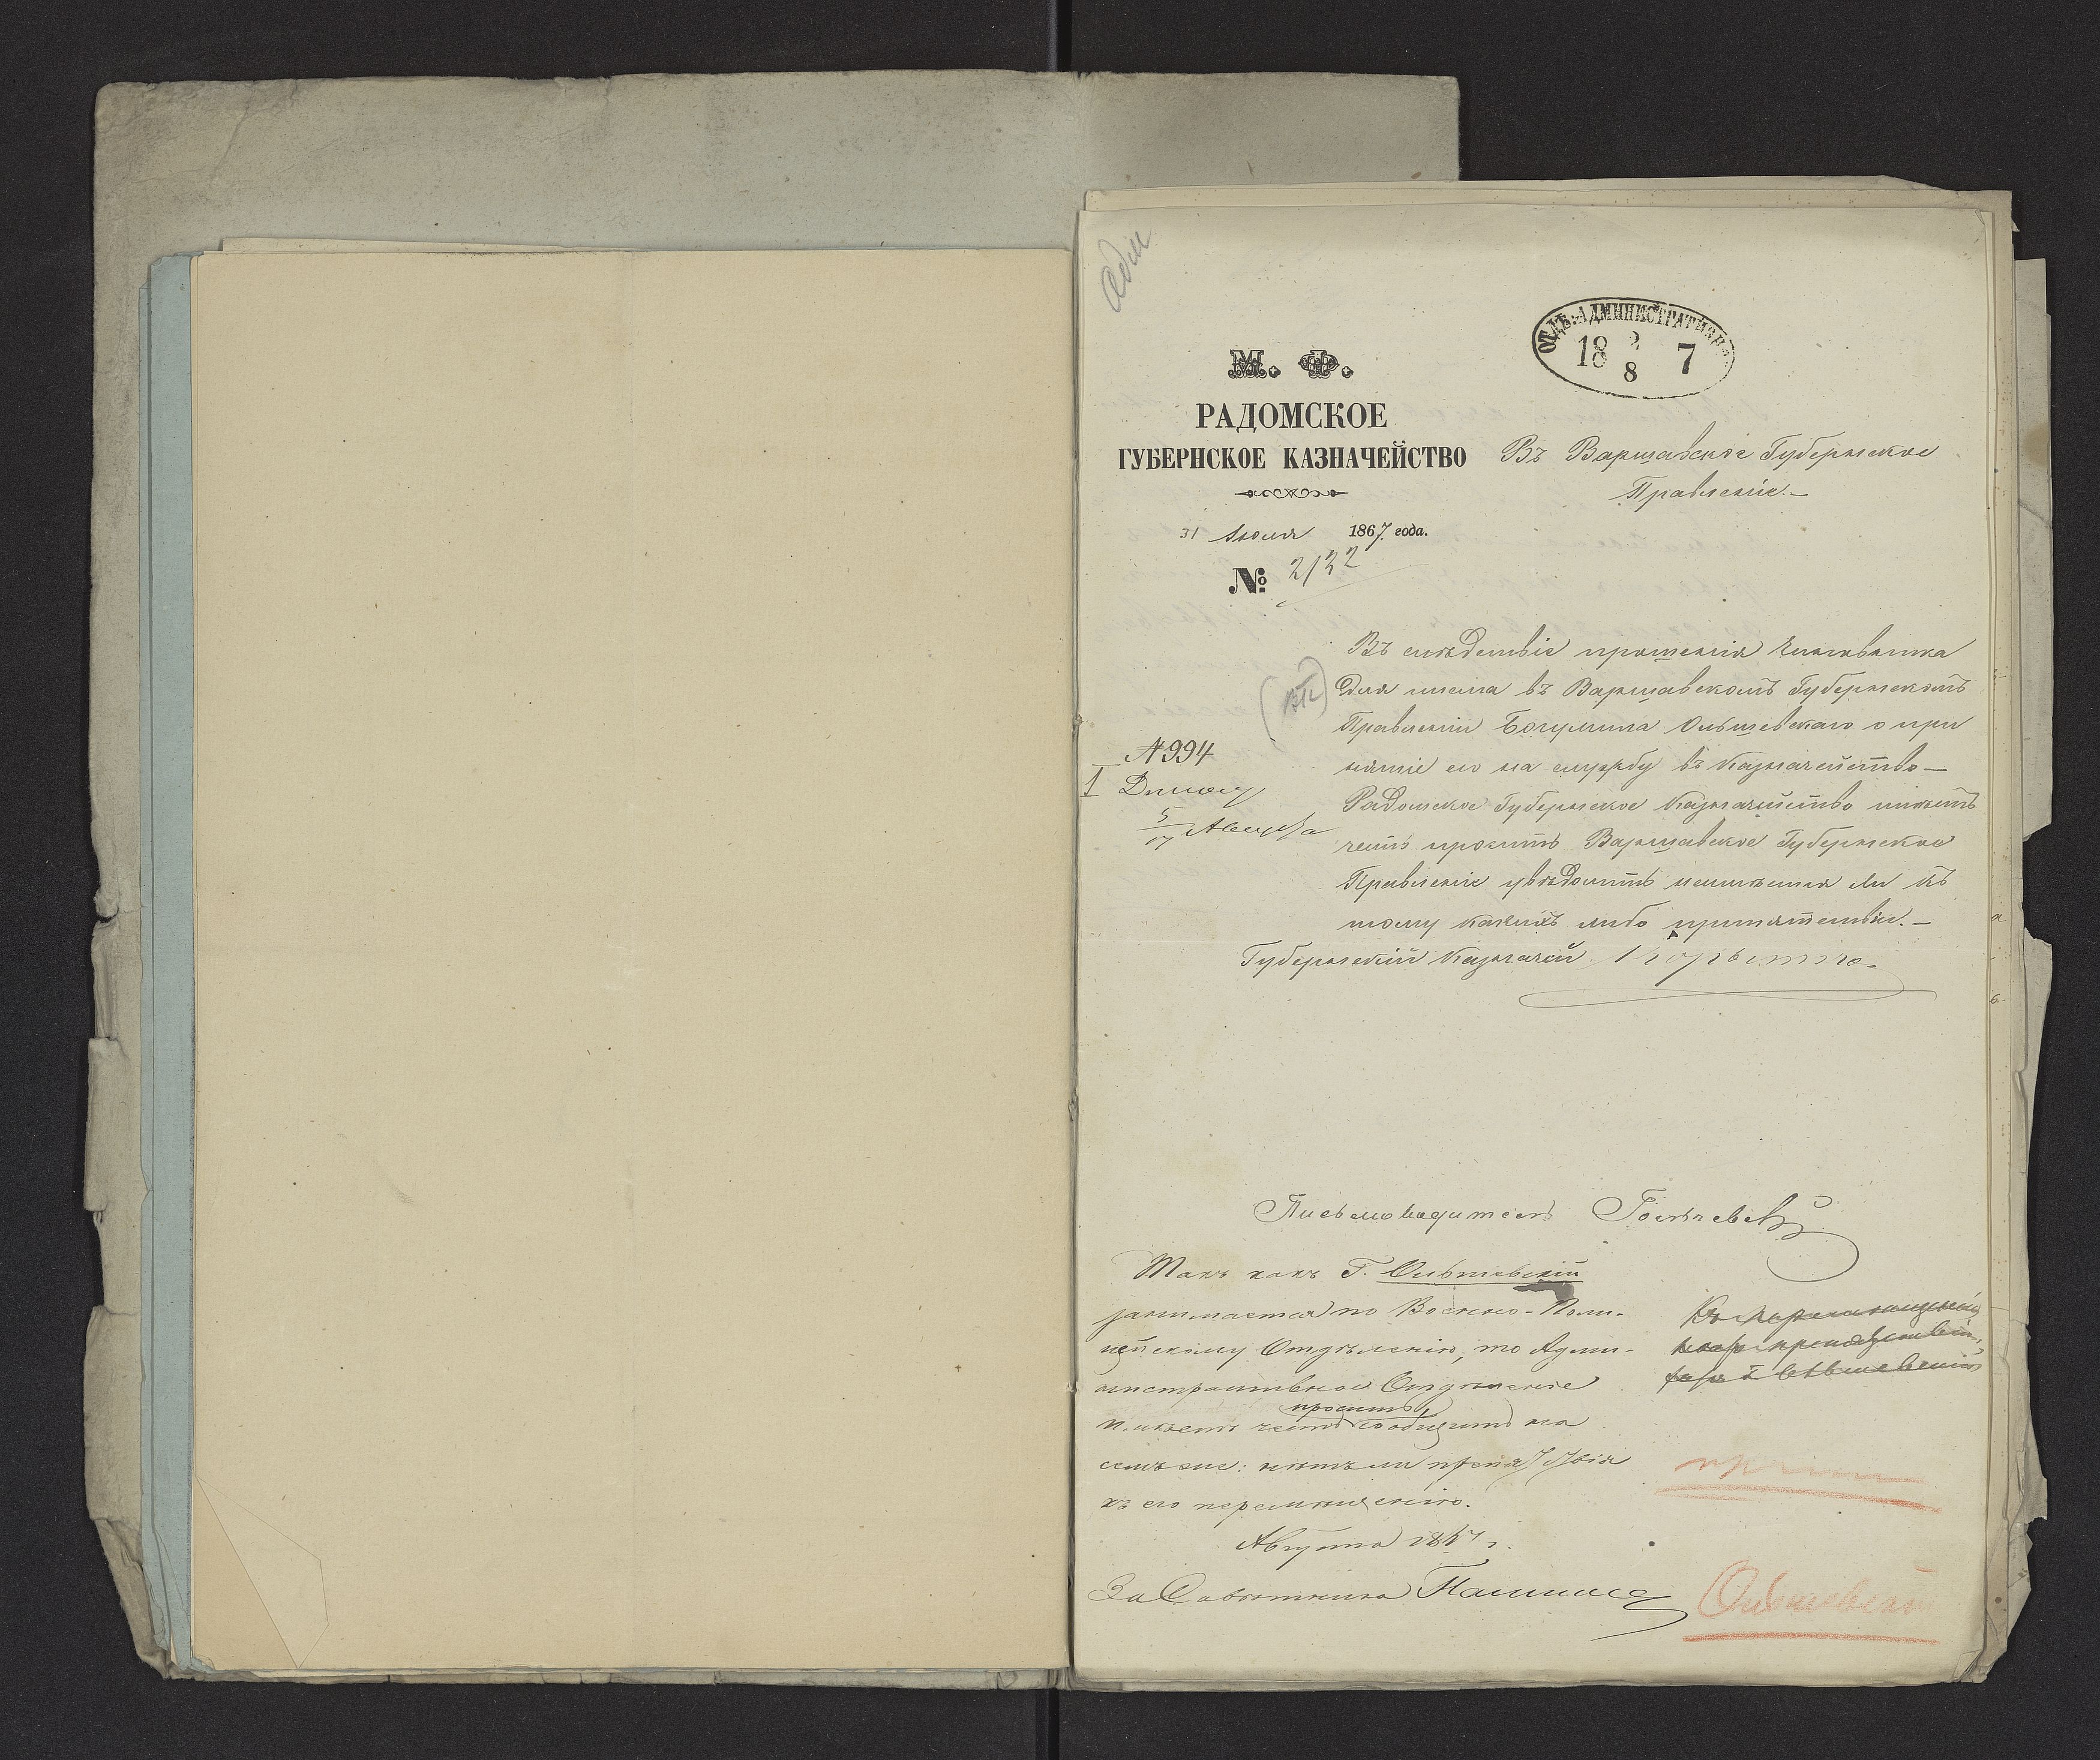 Адм
ОТДѢ. АДМИНИСТРАТИВН.
18 2/8 7
М. Ф.
РАДОМСКОЕ
ГУБЕРНСКОЕ КАЗНАЧЕЙСТВО
31 Июля 1867 года.
№ 2132
Въ Варшавское Губернское
Правленіе.—
Въ слѣдствіе прошенія Чиновника
для письма въ Варшавскомъ Губернскомъ
Правленіи Богумила Ольшевскаго о при
нятіе его на службу въ Казначейство —
Радомское Губернское Казначейство имѣетъ
честь просить Варшавское Губернское
Правленіе увѣдомить неимѣется ли къ
тому какихъ либо припятствіи.—
Губернскій Казначей
№ 994
1
5/17 Августа
Письмоводитель
Такъ какъ Г. Ольшевскій
занимается по Военно-Поли-
цейскому Отдѣленію, то Адми-
нистративное Отдѣленіе
просить
имѣетъ честь сообщить на
семъ же: нѣтъ ли препятствія
къ его перемѣщенію.
Августа 1867 г.
За Совѣтника
Къ перемѣщенію
препятствій
Ольшевскій